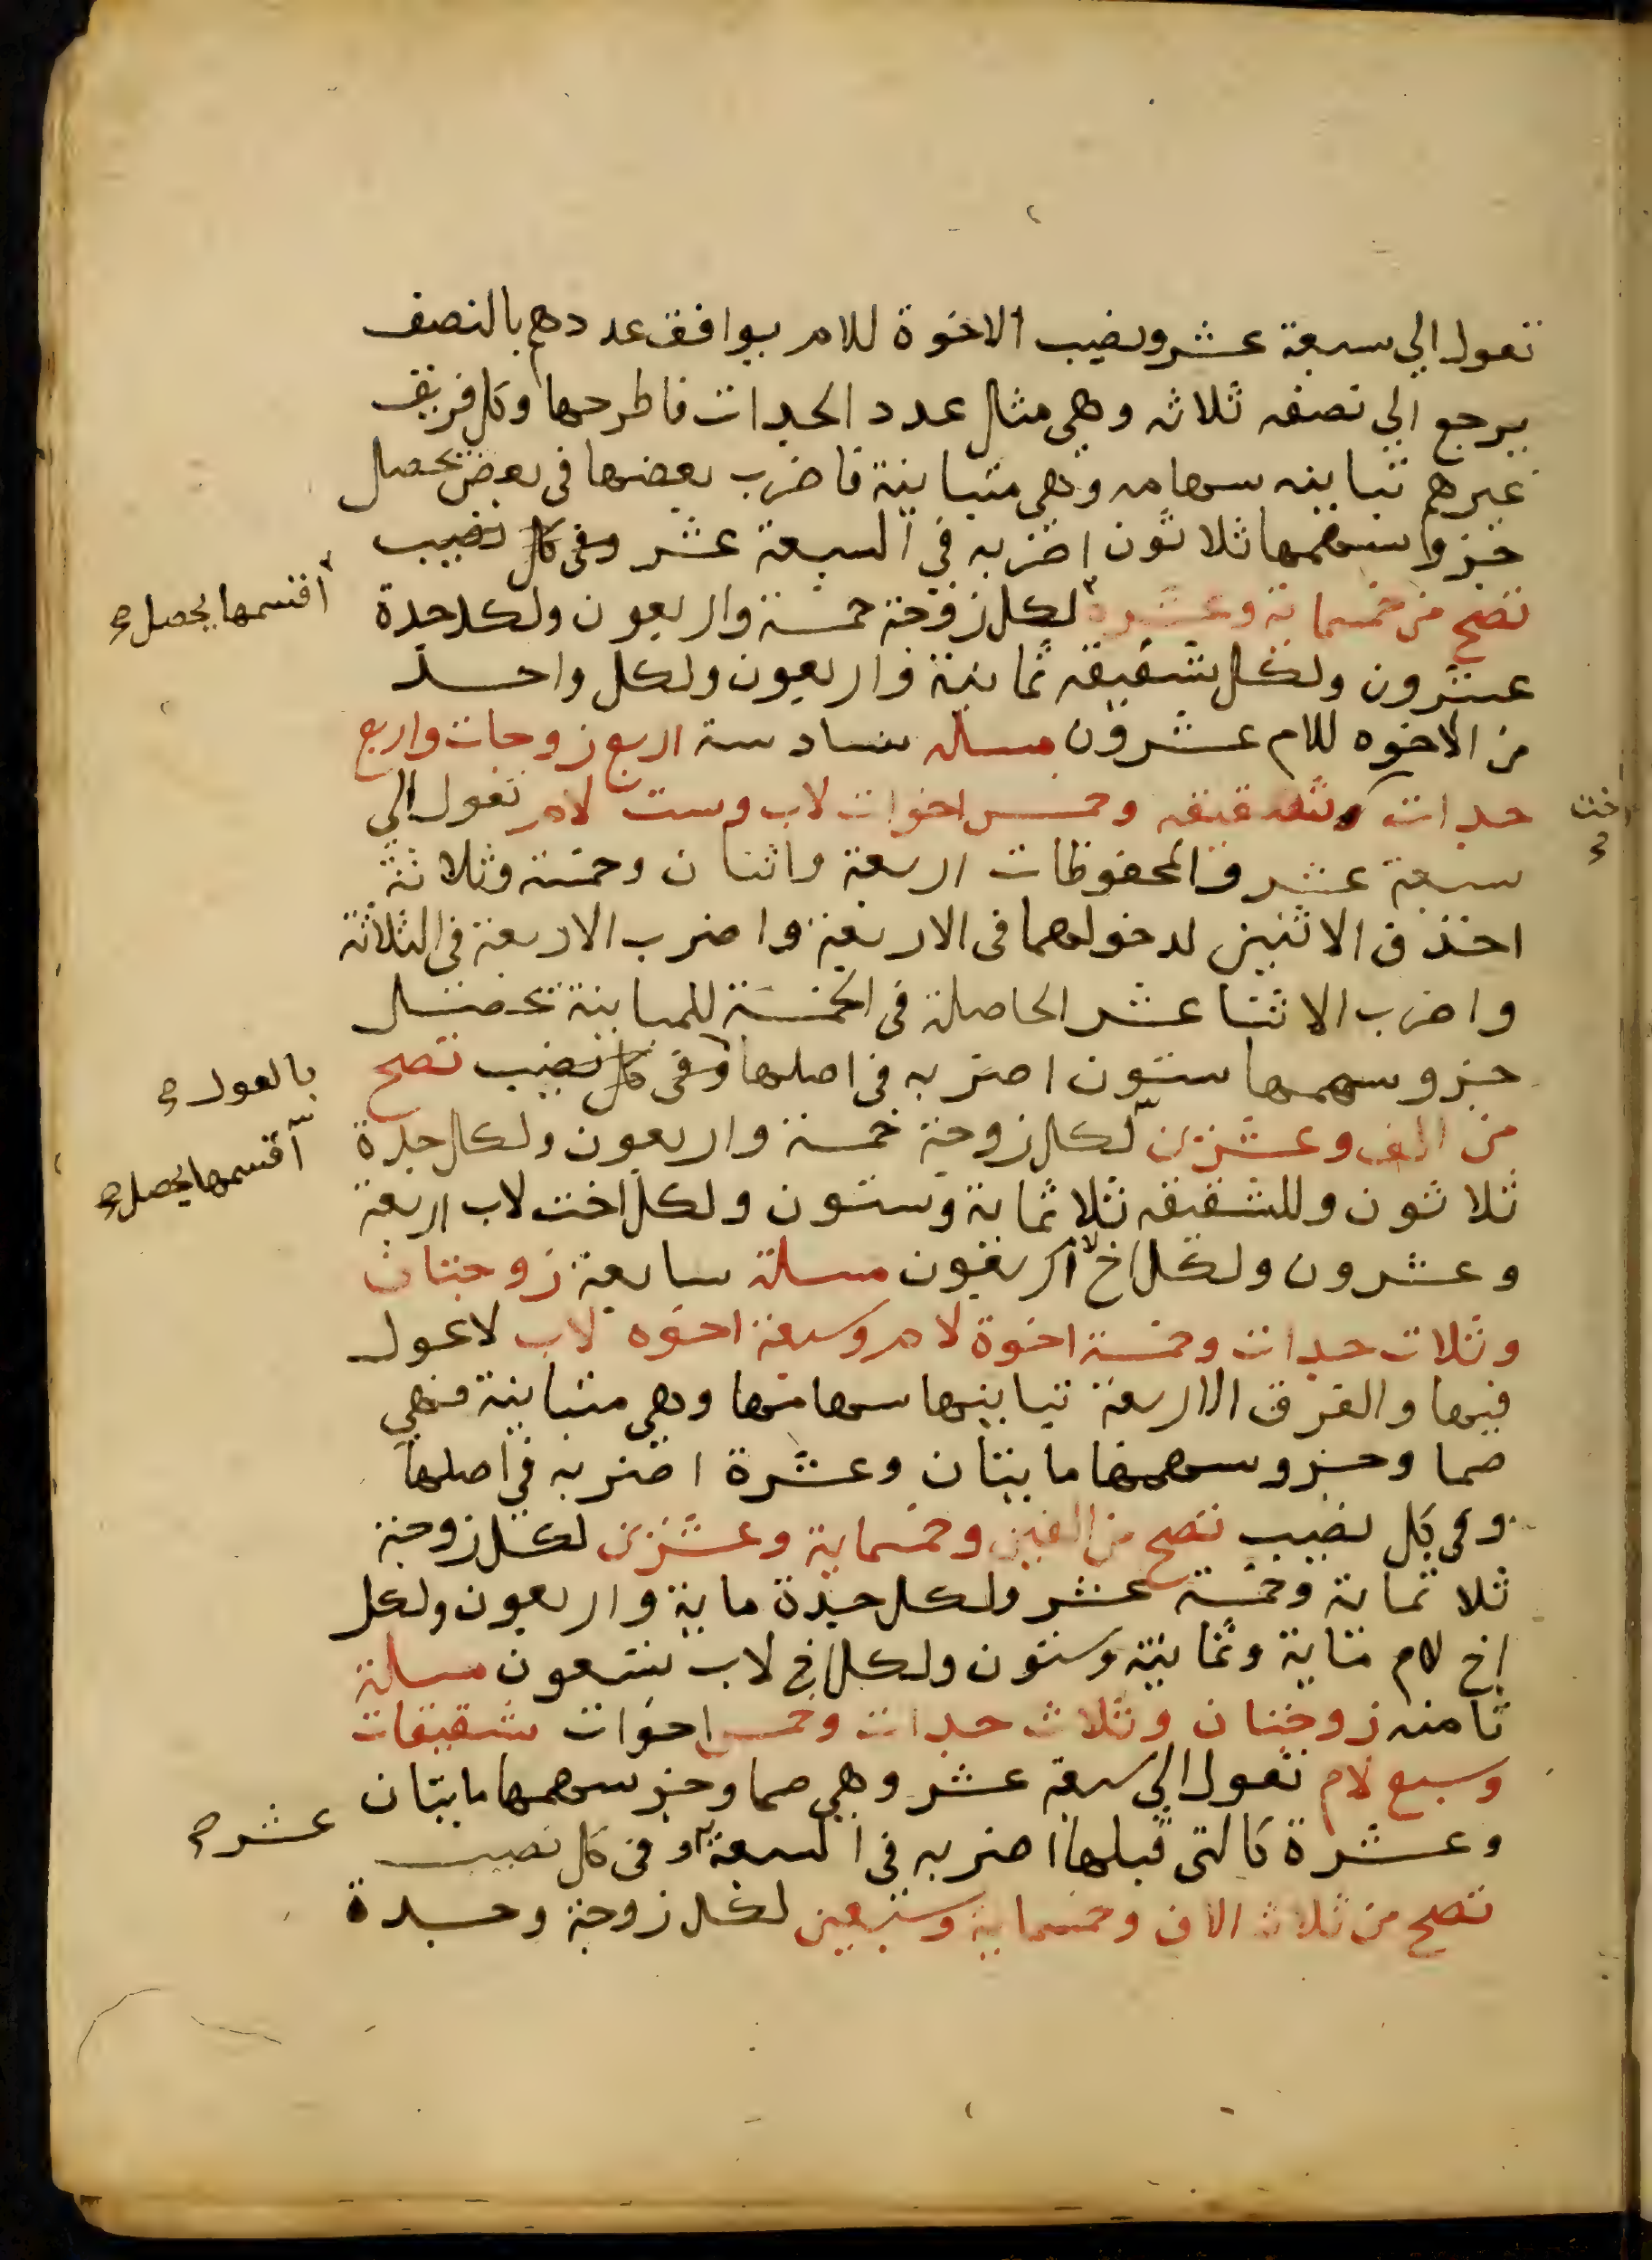 تعول الي سبعة عشر ونصيب الاخوة للام يوافق عددهم بالنصف
يرجع الي نصفه ثلاثه وهي مثال عدد الجدات فاطرحها وكل فريق
غيرهم تباينه سهامه وهي متباينة فاضرب بعضها في بعض تحصل
جزو سهمها ثلاثون اضربه في السبعة عشر وفي كل نصيب
اقسمها يحصل صح
تصح من خمسماية وعشرة لكل زوجة خمسة واربعون ولكل جدة
عشرون ولكل شقيقه ثمانية واربعون ولكل واحد
من الاخوه للام عشرون مسئله سادسة اربع زوجات واربع
جدات وشقيقه وخمس اخوات لاب وست لام تعول الي
اخت صح
سبعة عشر والمحفوظات اربعة واثنان وخمسة وثلاثة
احذف الاثنين لدخولهما في الاربعة واضرب الاربعة في الثلاثة
واضرب الاثنا عشر الحاصلة في الخمسة للمباينة تحصل
جزو سهمها ستون اضربه في اصلها وفي كل نصيب تصح
بالعول صح
من الف وعشرين لكل زوجة خمسة واربعون ولكل جدة
اقسمها يحصل صح
ثلاثون وللشقيقه ثلاثماية وستون ولكل اخت لاب اربعة
وعشرون ولكل اخ لام اربعون مسلة سابعة زوجتان
وثلاث جدات وخمسة اخوة لام وسبعة اخوه لاب لا عول
فيها والفرق الاربعة تباينها سهامها وهي متباينة فهي
صما وجزو سهمها مايتان وعشرة اضربه في اصلها
وفي كل نصيب تصح من الفين وخمسماية وعشرين لكل زوجة
ثلاثماية وخمسة عشر ولكل جدة ماية واربعون ولكل
اخ لام ماية وثمانية وستون ولكل اخ لاب تسعون مسلة
ثامنه زوجتان وثلاث جدات وخمس اخوات شقيقات
وسبع لام تعول الي سبعة عشر وهي صما وجزو سهمها مايتان
وعشرة كالتي قبلها اضربه في السبعة وفي كل نصيب
عشر صح
تصح من ثلاث الاف وخمسماية وسبعين لكل زوجة وجدة